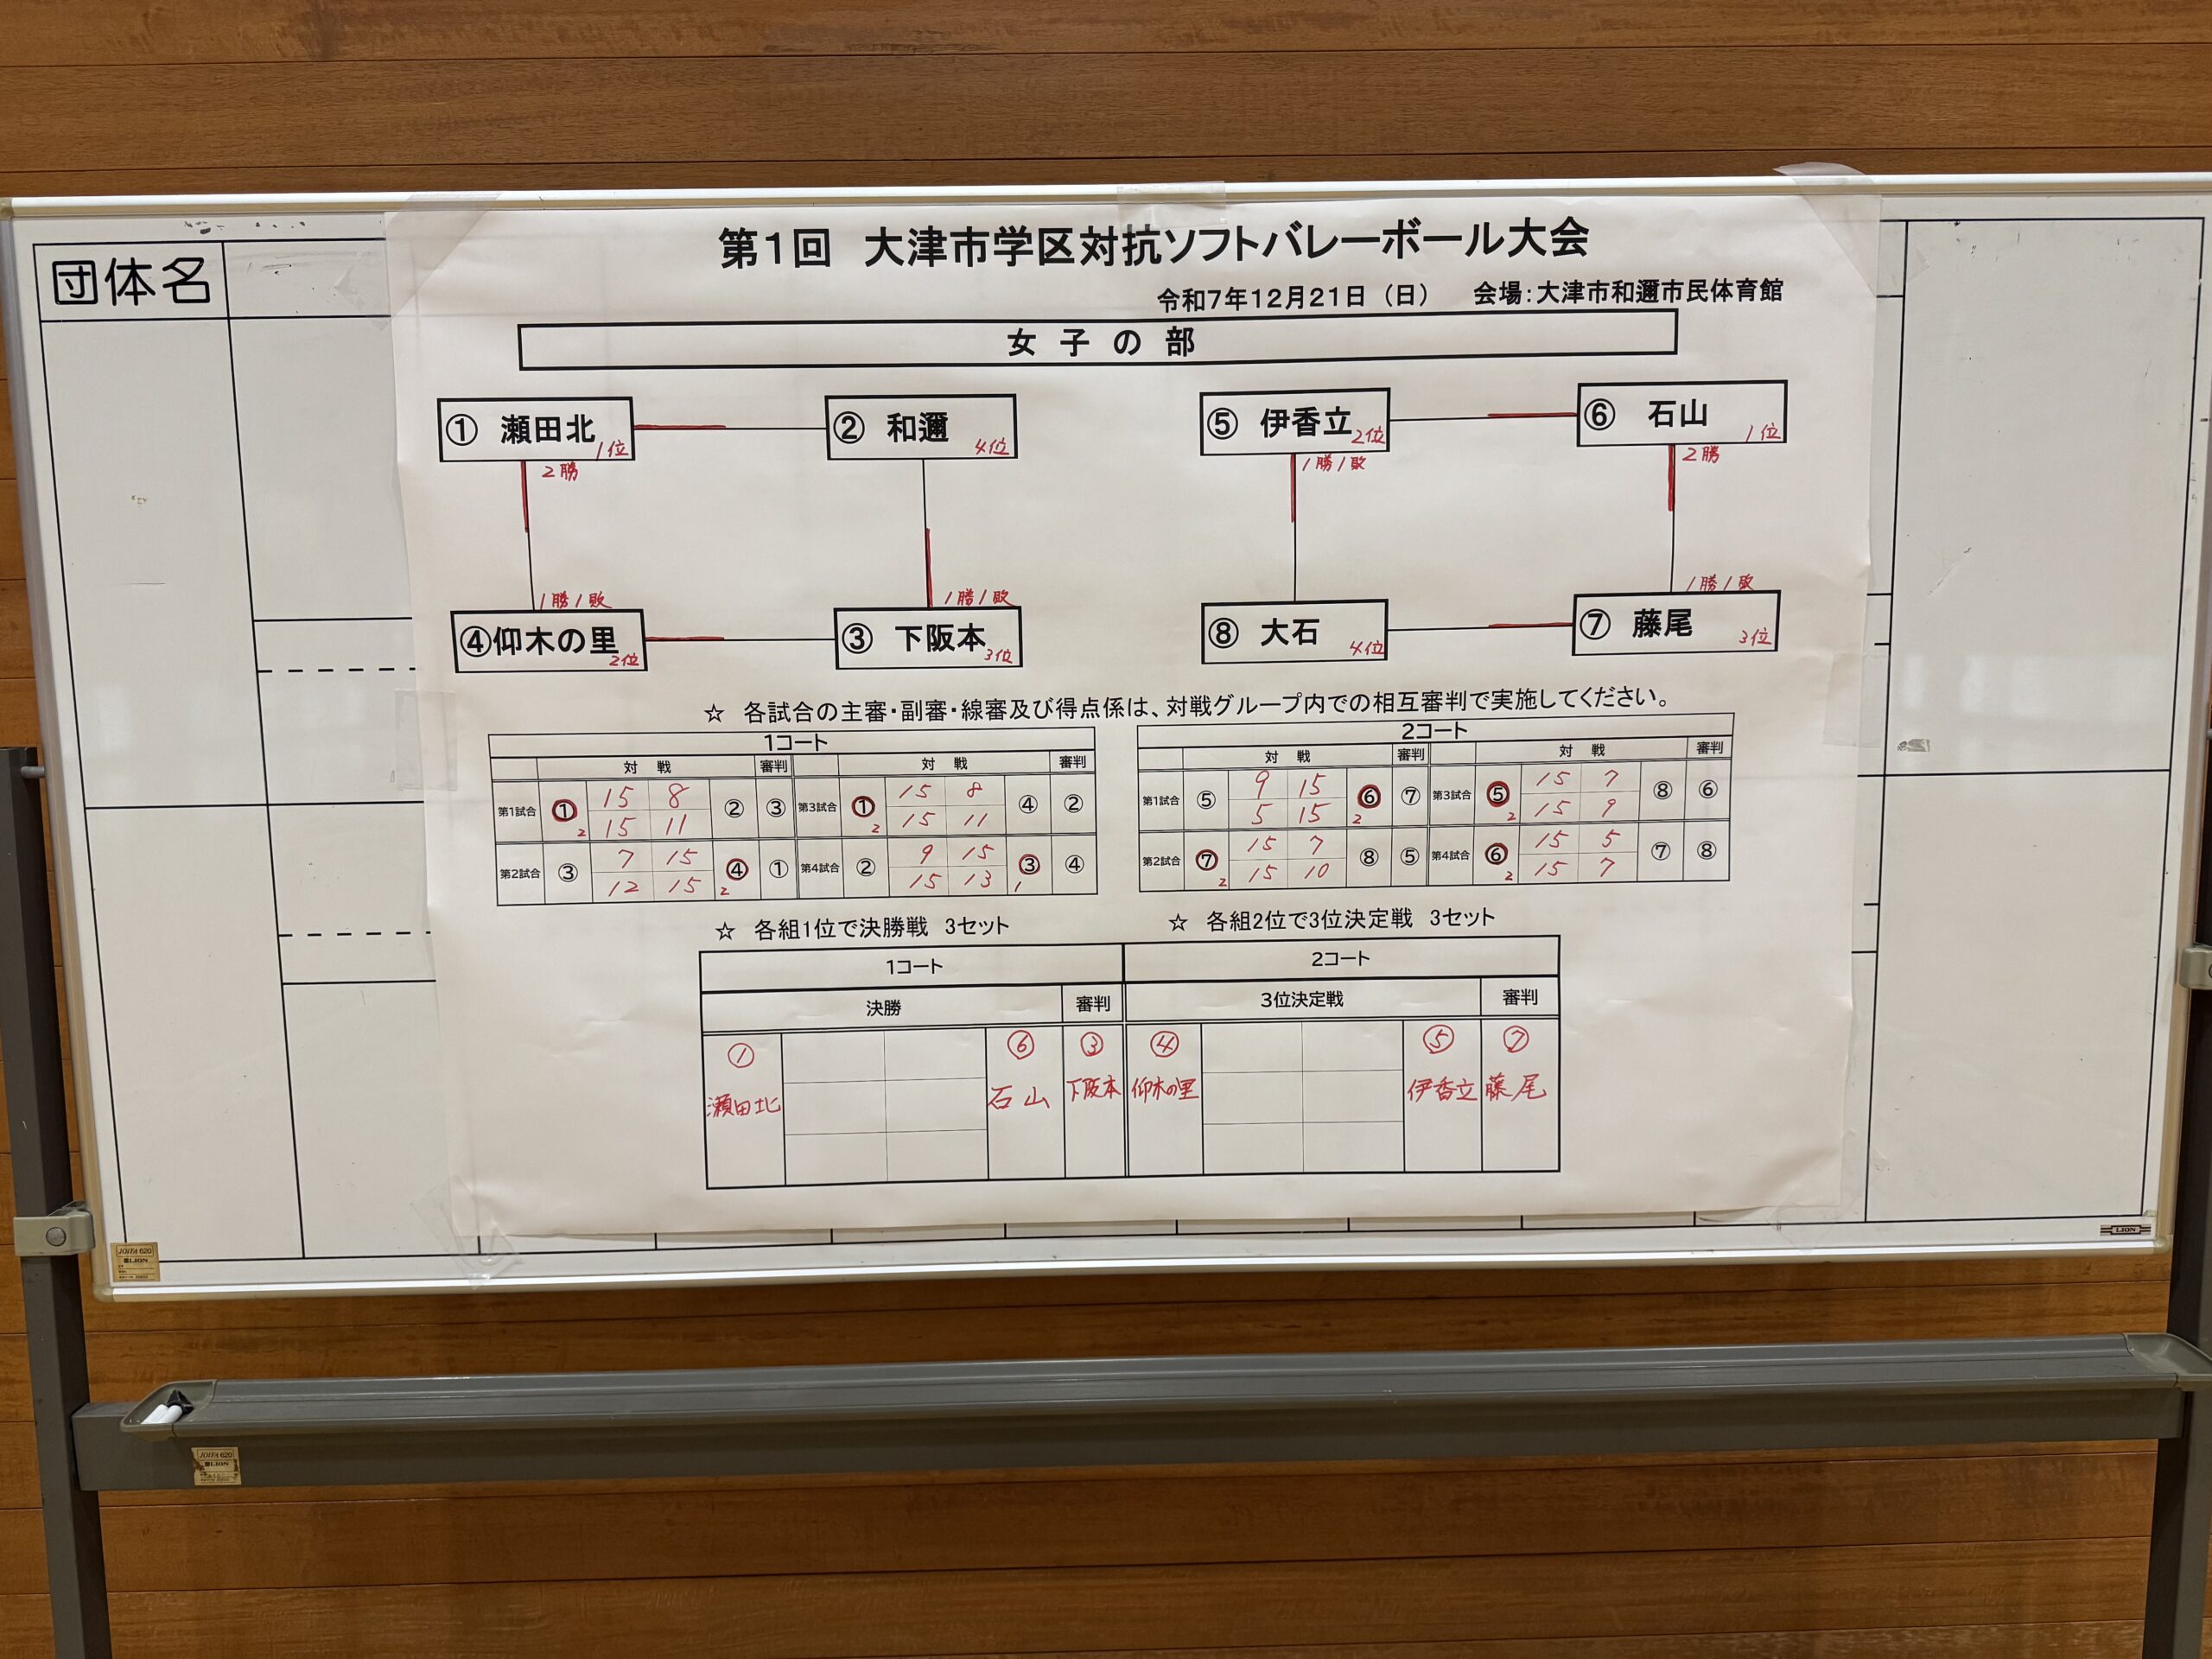 団体名
第1回 大津市学区対抗ソフトバレーボール大会
令和7年12月21日（日） 会場：大津市和邇市民体育館
女子の部
① 瀬田北 1位
2勝
② 和邇 4位
⑤ 伊香立 2位
1勝1敗
⑥ 石山 1位
2勝
1勝1敗
④仰木の里 2位
1勝1敗
③ 下阪本 3位
⑧ 大石 4位
1勝1敗
⑦ 藤尾 3位
☆ 各試合の主審・副審・線審及び得点係は、対戦グループ内での相互審判で実施してください。
1コート
対戦 審判 対戦 審判
第1試合 ① 2 15 8 ② ③ 第3試合 ① 2 15 8 ④ ②
15 11 15 11
第2試合 ③ 7 15 ④ 2 ① 第4試合 ② 9 15 ③ 1 ④
12 15 15 13
2コート
対戦 審判 対戦 審判
第1試合 ⑤ 9 15 ⑥ 2 ⑦ 第3試合 ⑤ 2 15 7 ⑧ ⑥
5 15 15 9
第2試合 ⑦ 2 15 7 ⑧ ⑤ 第4試合 ⑥ 2 15 5 ⑦ ⑧
15 10 15 7
☆ 各組1位で決勝戦 3セット
☆ 各組2位で3位決定戦 3セット
1コート 2コート
決勝 審判 3位決定戦 審判
① ⑥ ③ ④ ⑤ ⑦
瀬田北 石山 下阪本 仰木の里 伊香立 藤尾
JOIFA 620
LION
LION
JOIFA 620
LION